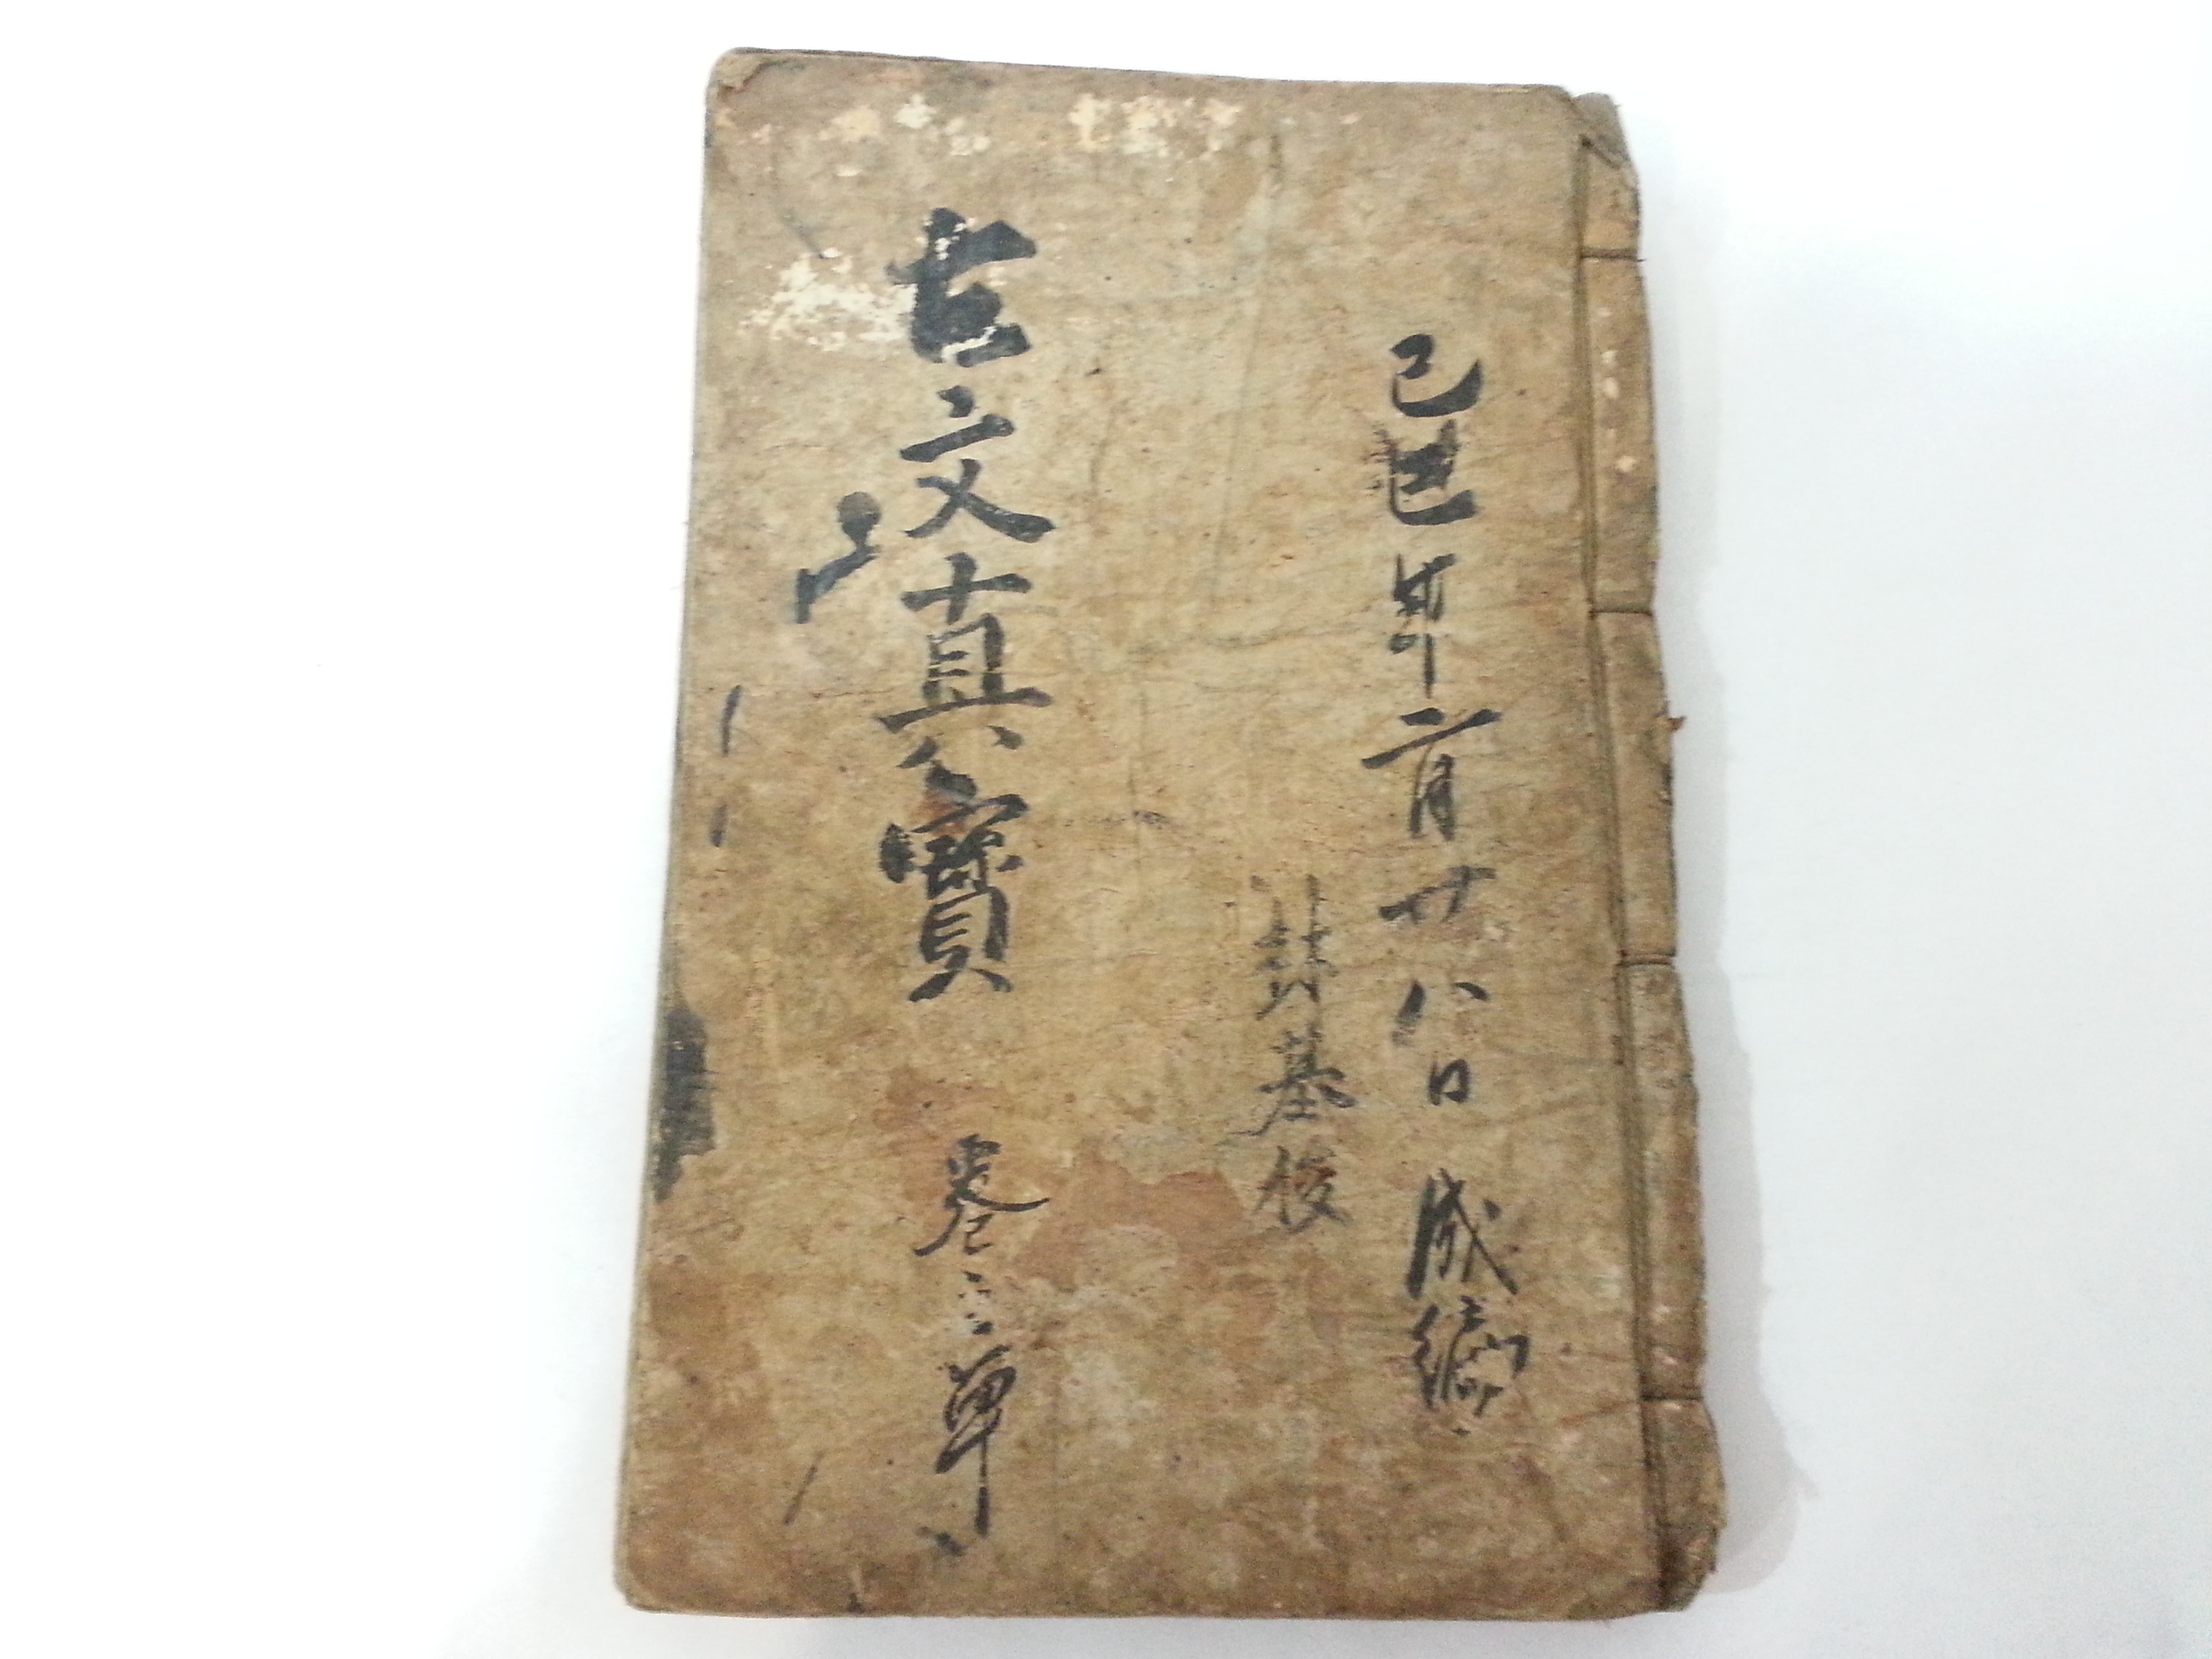 己巳年二月廿八日 成編
基俊
古文真寶 卷之單